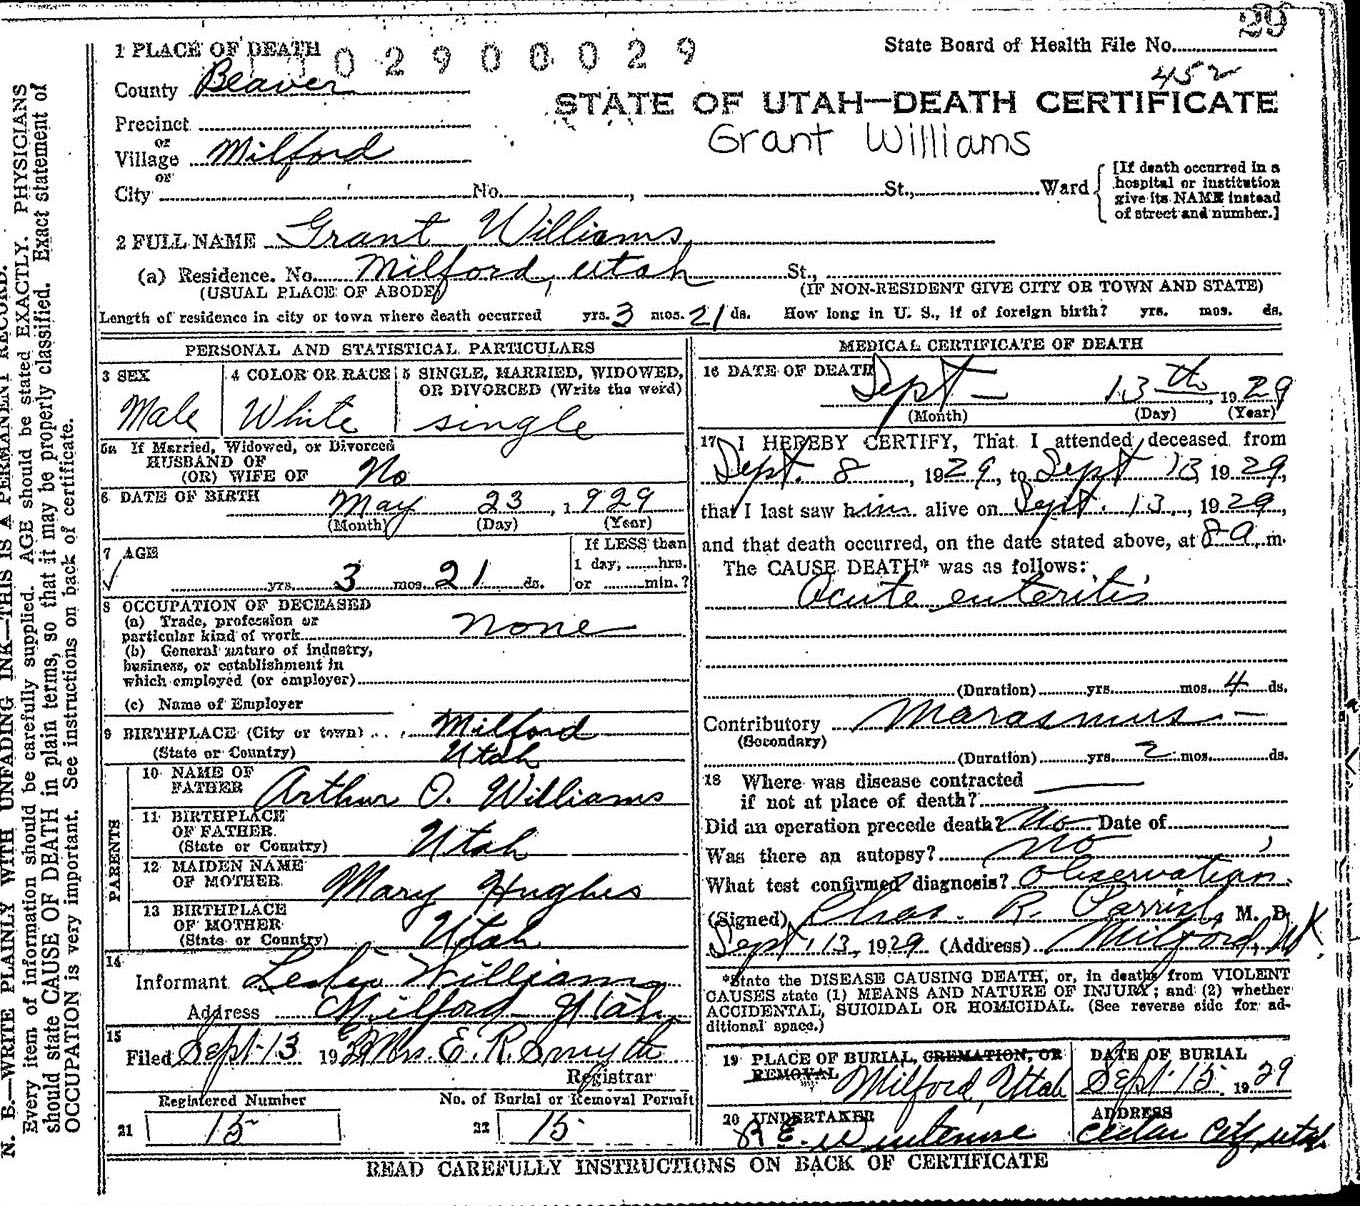 29
1 PLACE OF DEATH
0 2 9 0 0 0 2 9
State Board of Health File No.
452
County Beaver
STATE OF UTAH—DEATH CERTIFICATE
Precinct
Grant Williams
or
Village Milford
or
City No. , St., Ward
[If death occurred in a hospital or institution give its NAME instead of street and number.]
2 FULL NAME Grant Williams
(a) Residence. No. Milford, Utah St.,
(USUAL PLACE OF ABODE) (IF NON-RESIDENT GIVE CITY OR TOWN AND STATE)
Length of residence in city or town where death occurred yrs. 3 mos. 21 ds. How long in U. S., if of foreign birth? yrs. mos. ds.
PERSONAL AND STATISTICAL PARTICULARS
3 SEX Male
4 COLOR OR RACE White
5 SINGLE, MARRIED, WIDOWED, OR DIVORCED (Write the word) single
5a If Married, Widowed, or Divorced
HUSBAND OF
(OR) WIFE OF No
6 DATE OF BIRTH May 23, 1929
(Month) (Day) (Year)
7 AGE
yrs. 3 mos. 21 ds.
If LESS than
1 day, hrs.
or min.?
8 OCCUPATION OF DECEASED
(a) Trade, profession or
particular kind of work none
(b) General nature of industry,
business, or establishment in
which employed (or employer)
(c) Name of Employer
9 BIRTHPLACE (City or town) Milford
(State or Country) Utah
PARENTS
10 NAME OF FATHER Arthur O. Williams
11 BIRTHPLACE OF FATHER
(State or Country) Utah
12 MAIDEN NAME OF MOTHER Mary Hughes
13 BIRTHPLACE OF MOTHER
(State or Country) Utah
14
Informant Leslie Williams
Address Milford Utah
15
Filed Sept 13 1929 Mrs. E. R. Smyth
Registrar
Registered Number
21 15
No. of Burial or Removal Permit
22 15
MEDICAL CERTIFICATE OF DEATH
16 DATE OF DEATH
Sept — 13th, 1929
(Month) (Day) (Year)
17 I HEREBY CERTIFY, That I attended deceased from
Sept. 8, 1929, to Sept 13 1929,
that I last saw him alive on Sept. 13, 1929,
and that death occurred, on the date stated above, at 8 a. m.
The CAUSE DEATH* was as follows:
Acute enteritis
(Duration) yrs. mos. 4 ds.
Contributory Marasmus —
(Secondary)
(Duration) yrs. 2 mos. ds.
18 Where was disease contracted
if not at place of death?
Did an operation precede death? No Date of
Was there an autopsy? No
What test confirmed diagnosis? Observation.
(Signed) Chas. R. Parrish, M. D.
Sept. 13, 1929 (Address) Milford, Ut.
*State the DISEASE CAUSING DEATH, or, in deaths from VIOLENT
CAUSES state (1) MEANS AND NATURE OF INJURY; and (2) whether
ACCIDENTAL, SUICIDAL OR HOMICIDAL. (See reverse side for ad-
ditional space.)
19 PLACE OF BURIAL, CREMATION, OR
REMOVAL Milford, Utah
DATE OF BURIAL
Sept 15 1929
20 UNDERTAKER
ADDRESS
Cedar City Utah
READ CAREFULLY INSTRUCTIONS ON BACK OF CERTIFICATE
N. B.—WRITE PLAINLY WITH UNFADING INK—THIS IS A PERMANENT RECORD.
Every item of information should be carefully supplied. AGE should be stated EXACTLY. PHYSICIANS
should state CAUSE OF DEATH in plain terms, so that it may be properly classified. Exact statement of
OCCUPATION is very important. See instructions on back of certificate.